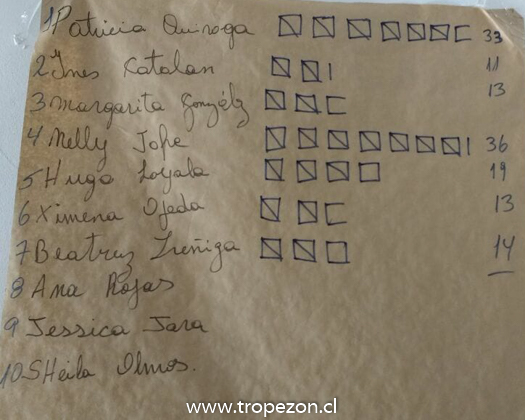 1 Patricia Quiroga 33
2 Ines Catalan 11
3 Margarita 13
4 Nelly Jofre 36
5 Hugo Loyola 19
6 Ximena Ojeda 13
7 Beatriz 14
8 Ana Rojas
9 Jessica Jara
10 SHeila Olmos.
www.tropezon.cl